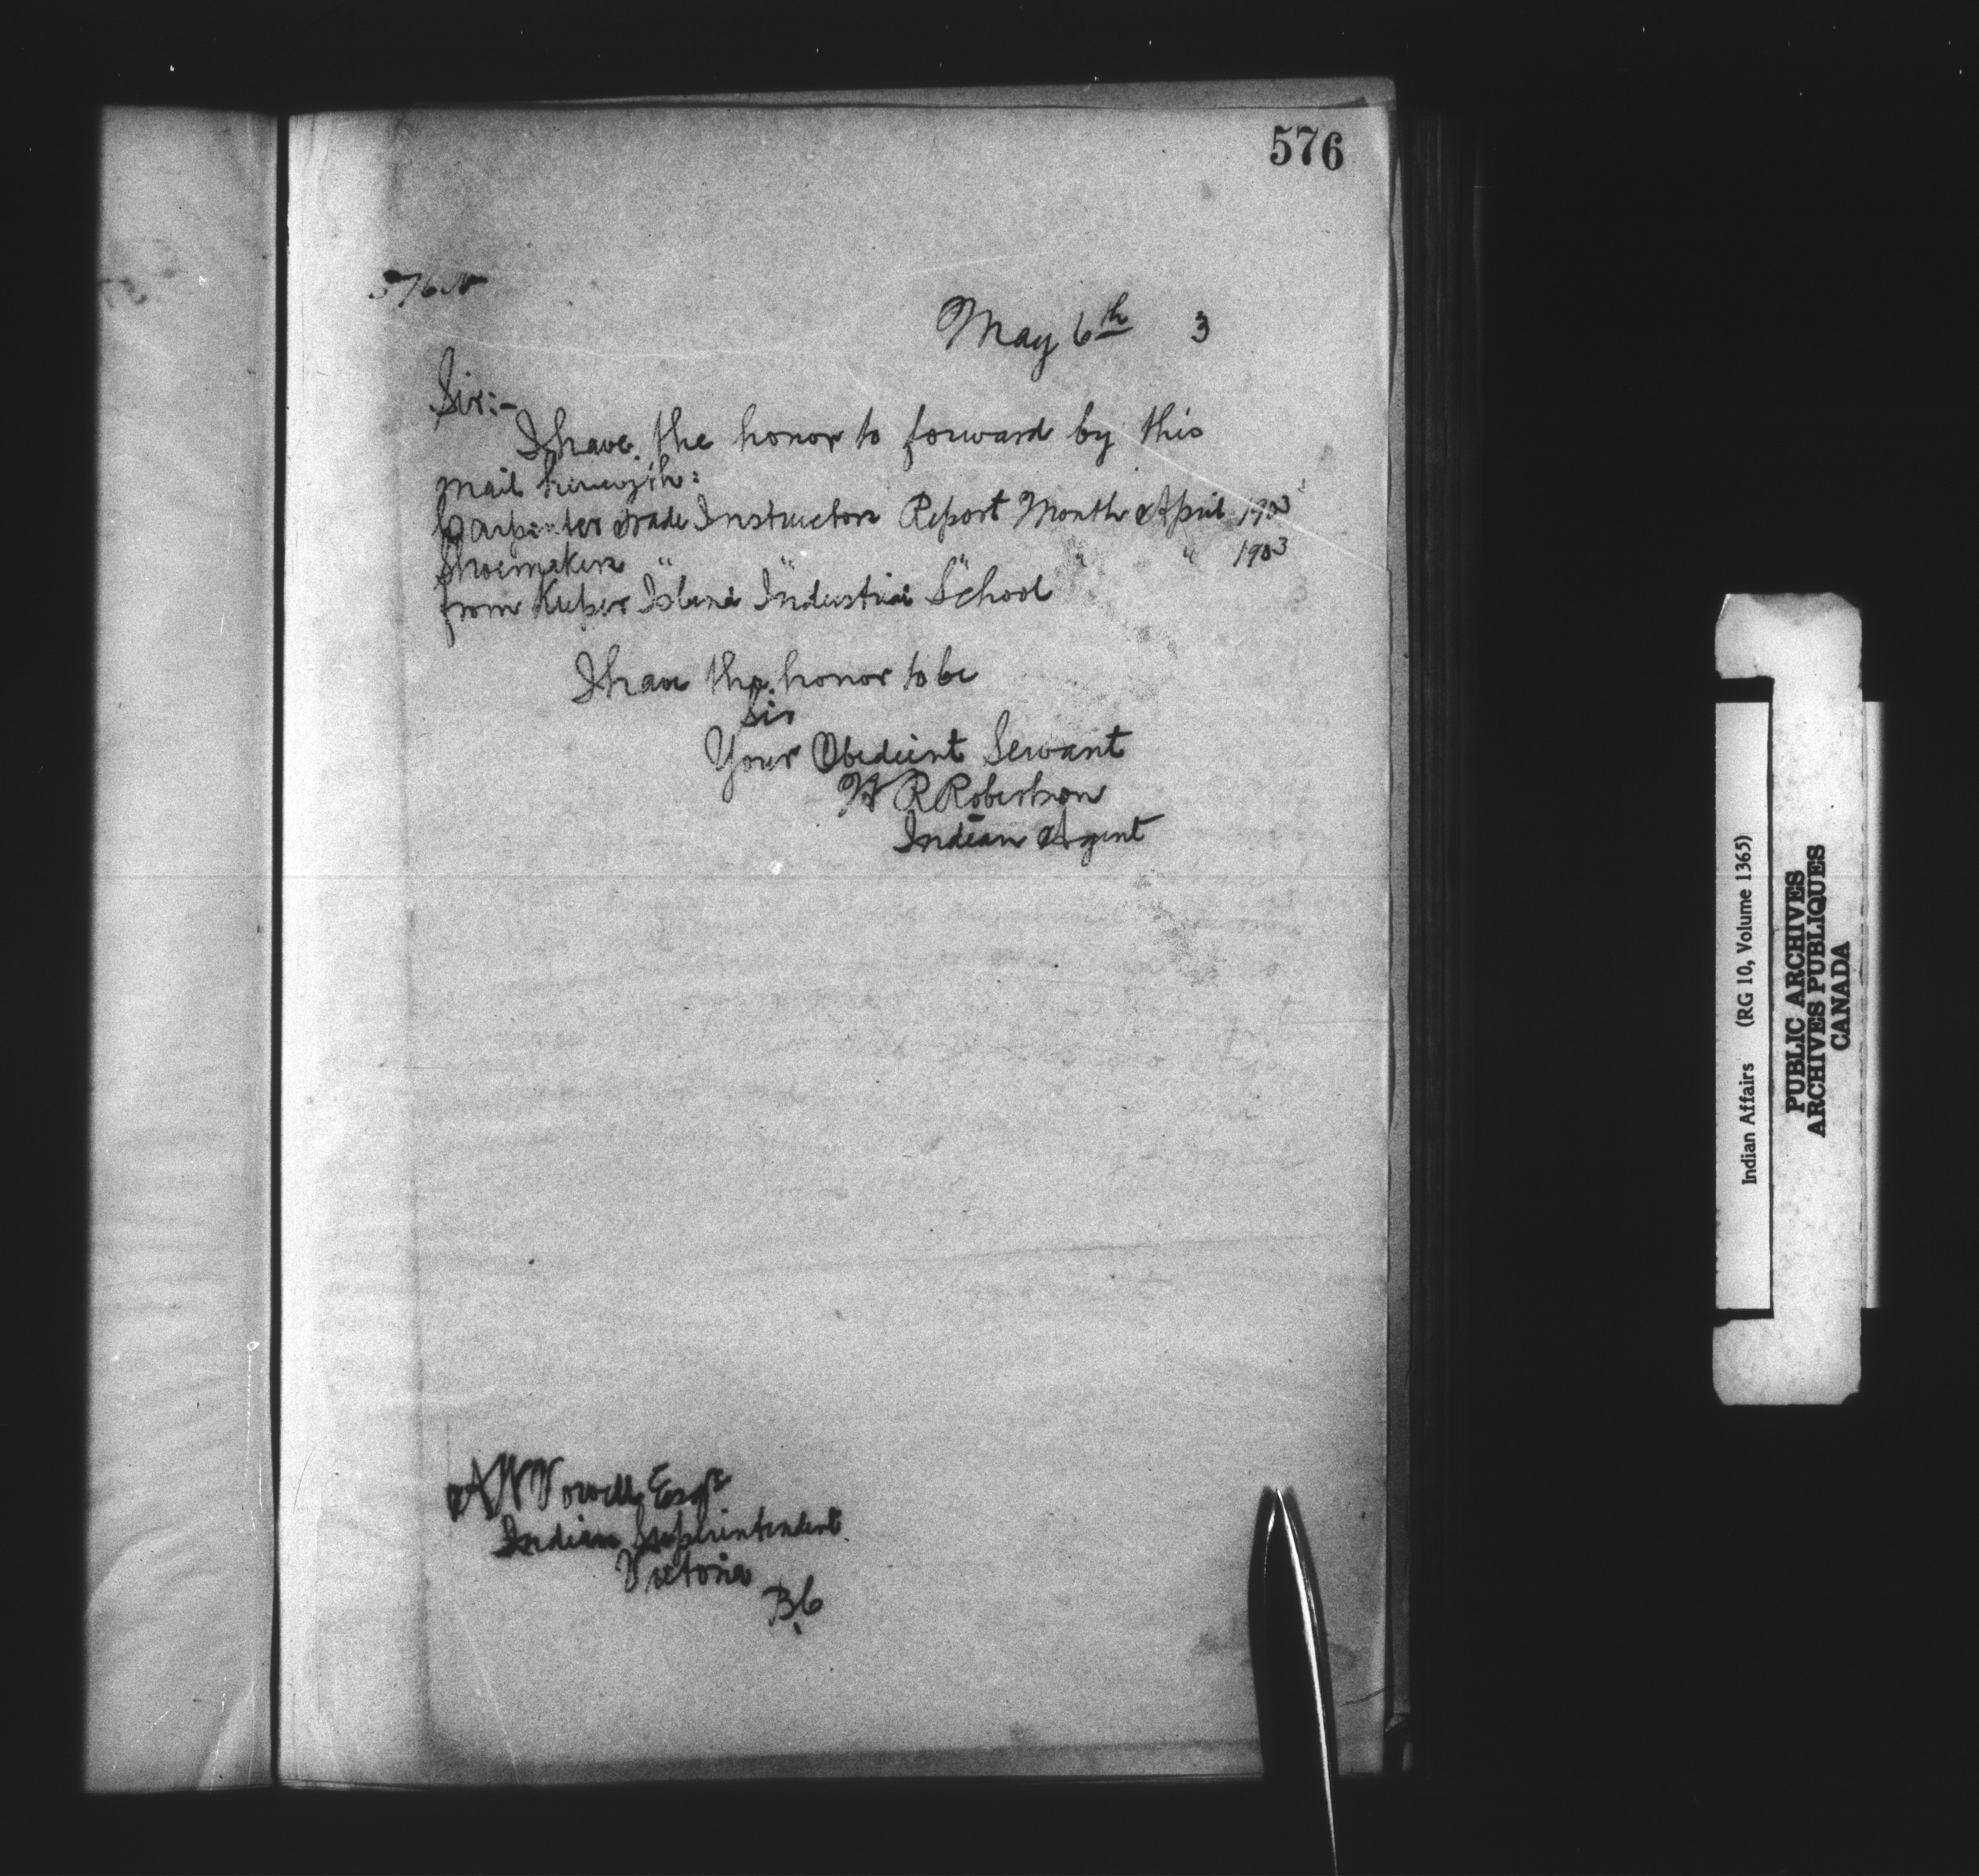 576
576 N
May 6th 3
Sir:-
I have the honor to forward by this
mail herewith:
Carpenter Trade Instructors Report Month April 1903
Shoemakers " " " " " 1903
from Kuper Island Industrial School
I have the honor to be
Sir
Your Obedient Servant
W R Robertson
Indian Agent
A W Vowell Esqr
Indian Superintendent
Victoria
B.C
Indian Affairs (RG 10, Volume 1365)
PUBLIC ARCHIVES
ARCHIVES PUBLIQUES
CANADA